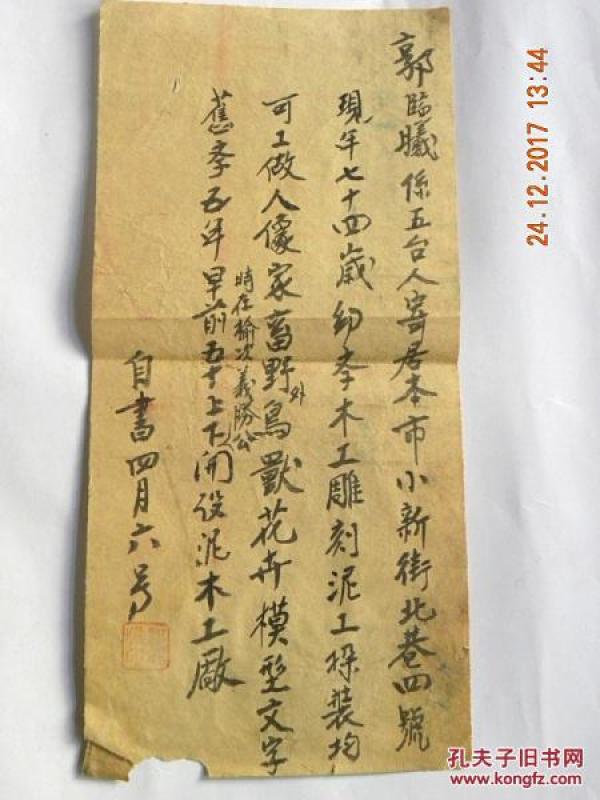 郭臨曦係五台人寄居本市小新街北巷四號
現年七十四歲幼李木工雕刻泥工採裝均
可工做人像家畜野外鳥獸花卉模型文字
舊李五年早前五十上下開设泥木工廠
時在榆次義勝公
自書四月六号
24.12.2017 13:44
孔夫子旧书网
www.kongfz.com